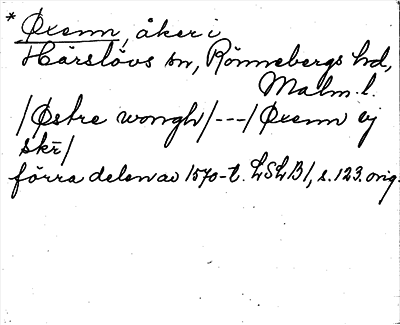 * Øxenn, åker i
Härslövs sn, Rönnebergs hd,
Malm. l.
/Østre wongh/---/Øxenn ej
skr/
förra delen av 1570-t. LSLB1, s. 123. orig.